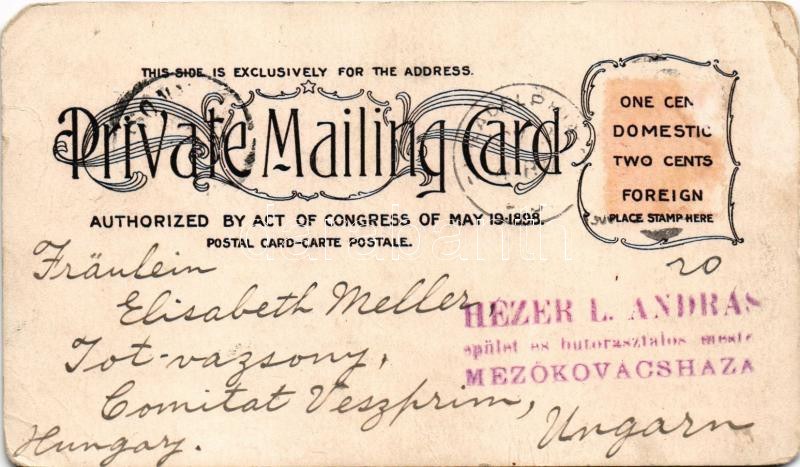 THIS SIDE IS EXCLUSIVELY FOR THE ADDRESS.
Private Mailing Card
AUTHORIZED BY ACT OF CONGRESS OF MAY 19-1898.
POSTAL CARD-CARTE POSTALE.
ONE CEN
DOMESTIC
TWO CENTS
FOREIGN
PLACE STAMP HERE
ADELPHI
20
Fräulein
Elisabeth Meller,
Tot-vazsony,
Comitat Veszprim,
Hungary.
Ungarn
HÉZER L. ANDRÁS
épület és butorasztalos meste
MEZŐKOVÁCSHAZA